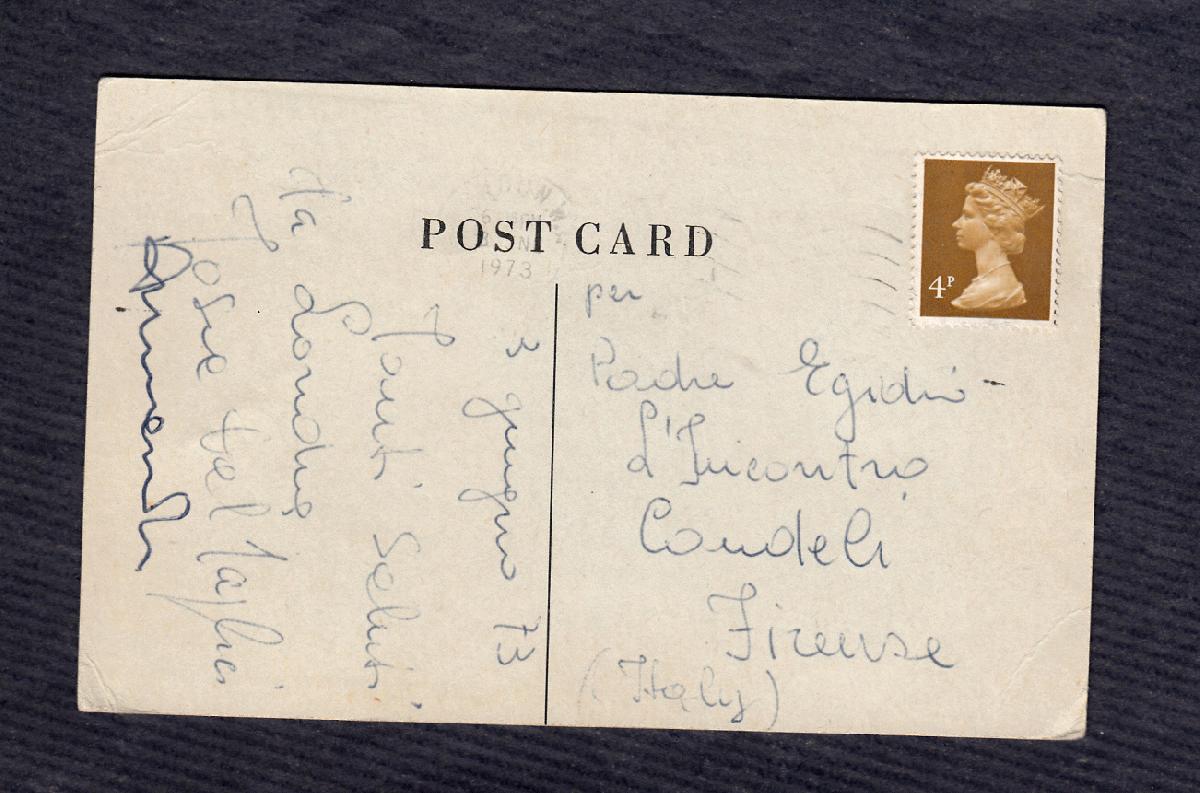 POST CARD
1973
4P
3 giugno 73
Tanti saluti
da Londra
Armando
per
Padre Egidio
L'Incontro
Candeli
Firenze
(Italy)